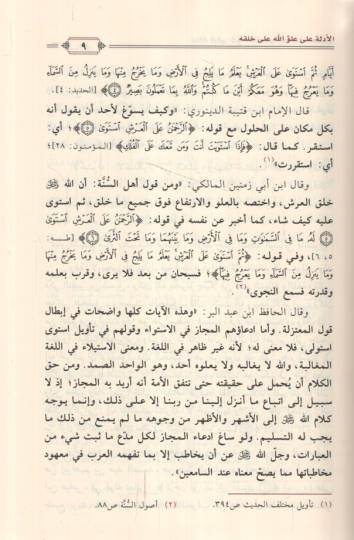 الأدلة على علو الله على خلقه
٩
أَيَّامٍ ثُمَّ اسْتَوَىٰ عَلَى الْعَرْشِ يَعْلَمُ مَا يَلِجُ فِي الْأَرْضِ وَمَا يَخْرُجُ مِنْهَا وَمَا يَنزِلُ مِنَ السَّمَآءِ
وَمَا يَعْرُجُ فِيهَا وَهُوَ مَعَكُمْ أَيْنَ مَا كُنتُمْ وَاللَّهُ بِمَا تَعْمَلُونَ بَصِيرٌ ﴿٤﴾ [الحديد: ٤].
قال الإمام ابن قتيبة الدينوري: «وكيف يسوّغ لأحد أن يقول أنه
بكل مكان على الحلول مع قوله: ﴿الرَّحْمَنُ عَلَى الْعَرْشِ اسْتَوَىٰ ﴿٥﴾﴾؛ أي:
استقر. كما قال: ﴿فَإِذَا اسْتَوَيْتَ أَنتَ وَمَن مَّعَكَ عَلَى الْفُلْكِ﴾ [المؤمنون: ٢٨]؛
أي: استقررت»(١).
وقال ابن أبي زمنين المالكي: «ومن قول أهل السُّنَّة: أن الله ﷻ
خلق العرش، واختصه بالعلو والارتفاع فوق جميع ما خلق، ثم استوى
عليه كيف شاء، كما أخبر عن نفسه في قوله: ﴿الرَّحْمَنُ عَلَى الْعَرْشِ اسْتَوَىٰ
﴿٥﴾ لَهُ مَا فِي السَّمَوَتِ وَمَا فِي الْأَرْضِ وَمَا بَيْنَهُمَا وَمَا تَحْتَ الثَّرَىٰ ﴿٦﴾﴾ [طه:
٥، ٦]، وفي قوله: ﴿ثُمَّ اسْتَوَىٰ عَلَى الْعَرْشِ يَعْلَمُ مَا يَلِجُ فِي الْأَرْضِ وَمَا يَخْرُجُ مِنْهَا
وَمَا يَنزِلُ مِنَ السَّمَآءِ وَمَا يَعْرُجُ فِيهَا﴾؛ فسبحان من بعد فلا يرى، وقرب بعلمه
وقدرته فسمع النجوى»(٢).
وقال الحافظ ابن عبد البر: «وهذه الآيات كلها واضحات في إبطال
قول المعتزلة. وأما ادعاؤهم المجاز في الاستواء وقولهم في تأويل استوى
استولى، فلا معنى له؛ لأنه غير ظاهر في اللغة. ومعنى الاستيلاء في اللغة
المغالبة، والله لا يغالبه ولا يعلوه أحد؛ وهو الواحد الصمد. ومن حق
الكلام أن يُحمل على حقيقته حتى تتفق الأمة أنه أريد به المجاز؛ إذ لا
سبيل إلى اتباع ما أنزل إلينا من ربنا إلا على ذلك، وإنما يوجه
كلام الله ﷻ إلى الأشهر والأظهر من وجوهه ما لم يمنع من ذلك ما
يجب له التسليم. ولو ساغ ادعاء المجاز لكل مدّعٍ ما ثبت شيء من
العبارات، وجلّ الله ﷻ عن أن يخاطب إلا بما تفهمه العرب في معهود
مخاطباتها مما يصحّ معناه عند السامعين».
(١) تأويل مختلف الحديث ص٣٩٤. (٢) أصول السُّنَّة ص٨٨.